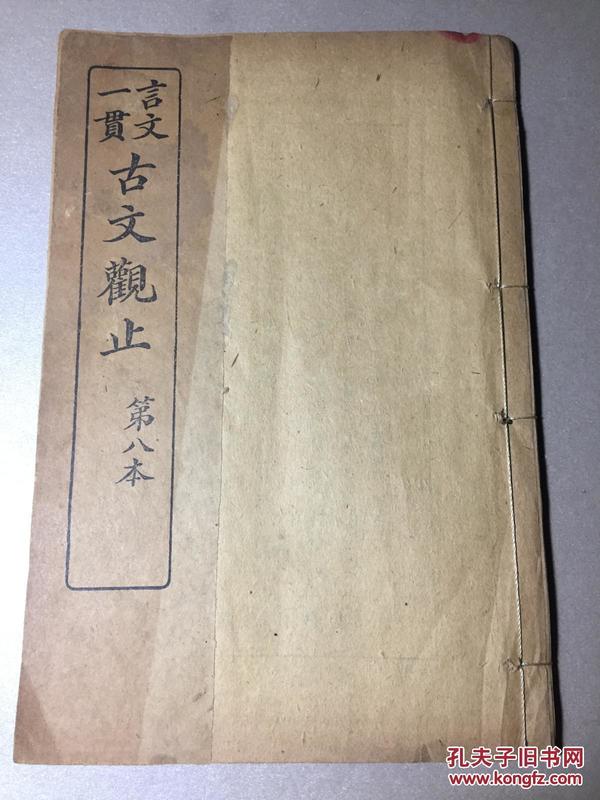 言文
一貫
古文觀止
第八本
孔夫子旧书网
www.kongfz.com